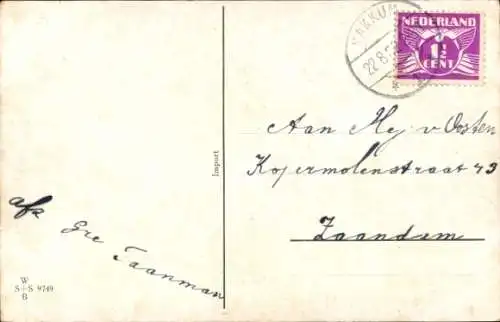 MAKKUM
22.8
NEDERLAND
1½
CENT
Aan Mej v Oosten
Kopermolenstraat 43
Zaandam
Import
afz Gre Taanman
W
S+S 9749
B